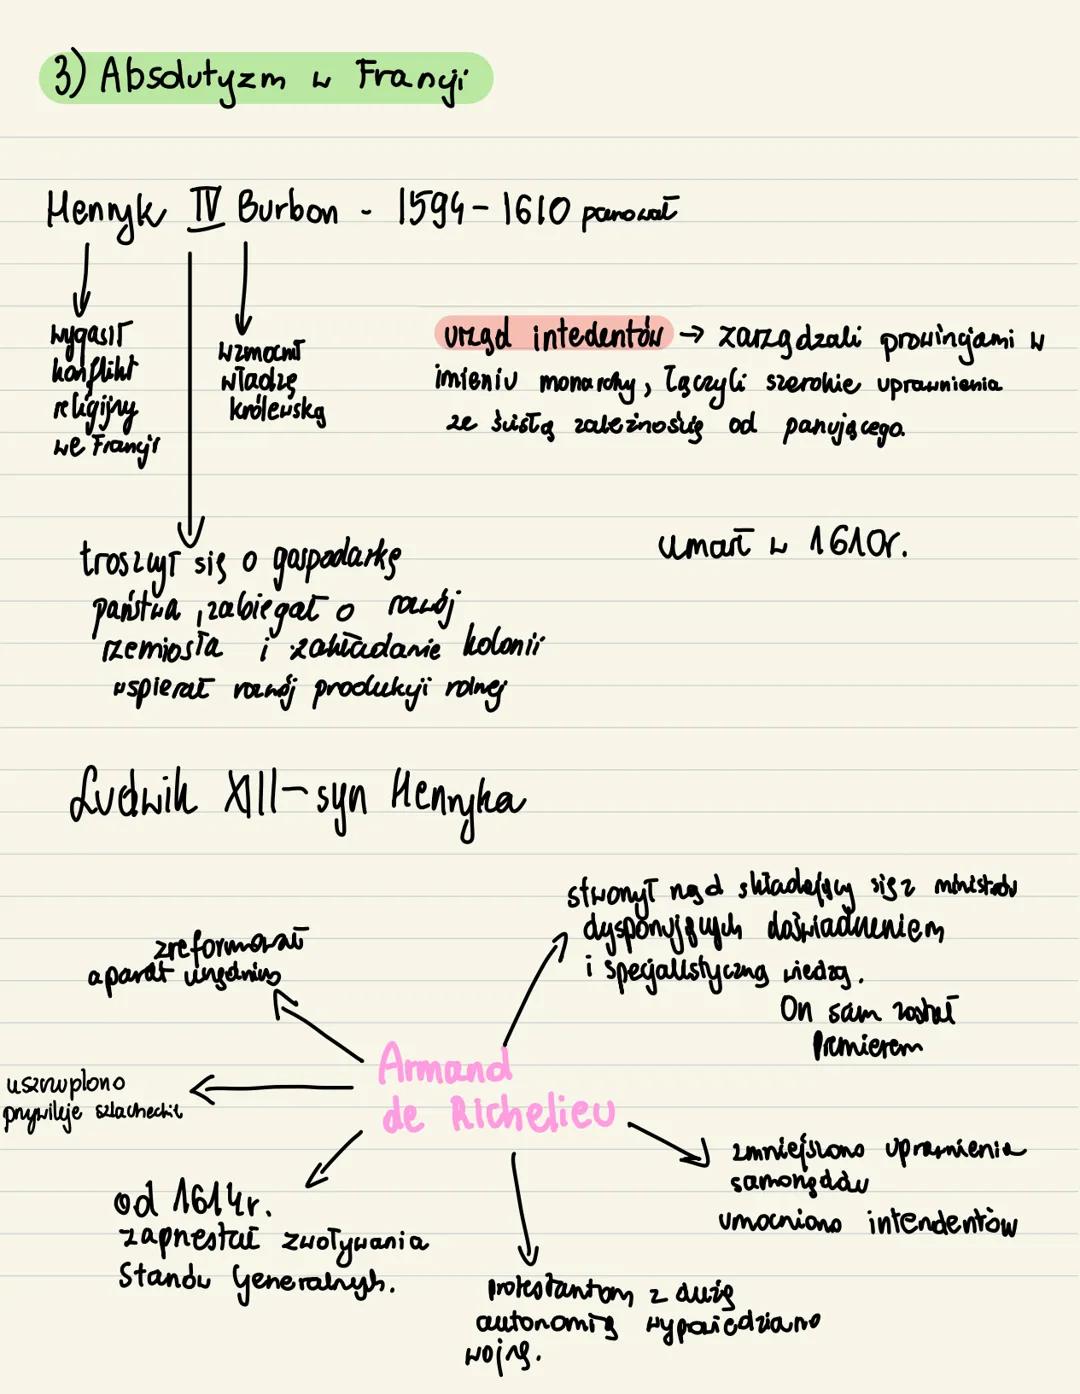 3) Absolutyzm w Francji
Henryk IV Burbon - 1594-1610 panował
wygasił
konflikt
religijny
we Francji
wzmocnił
władzę
królewską
urząd intedentów → zarządzali prowincjami w
imieniu monarchy, łączyli szerokie uprawnienia
ze ścisłą zależnością od panującego.
troszczył się o gospodarkę
państwa, zabiegał o rozwój
rzemiosła i zakładanie kolonii
wspierał rozwój produkcji rolnej
umarł w 1610r.
Ludwik XIII - syn Henryka
stworzył rząd składający się z ministrów
dysponujących doświadczeniem
i specjalistyczną wiedzą.
On sam został
Premierem
zreformował
aparat urzędniczy
Armand
de Richelieu
uszczuplono
przywileje szlacheckie
zmniejszono uprawnienia
samorządów
umocniono intendentów
od 1614r.
zaprzestał zwoływania
Stanów Generalnych.
protestantom z dużą
autonomią wypowiedziano
wojnę.